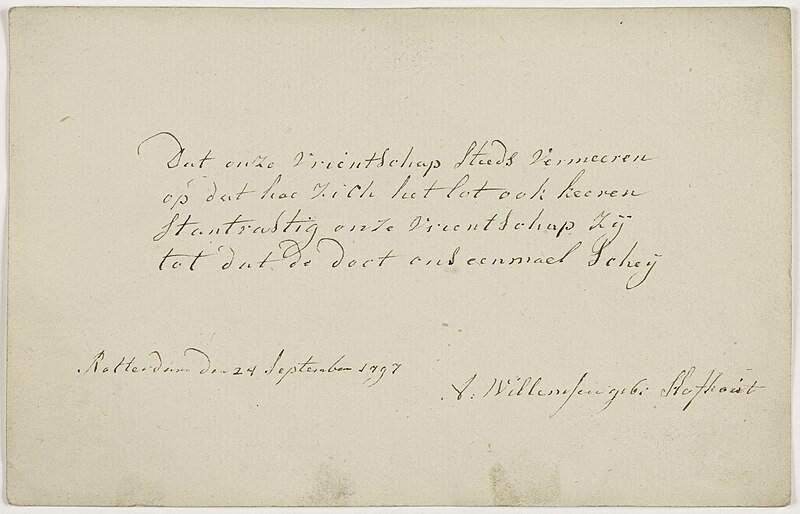 Dat onze Vrientschap Steeds Vermeeren
op dat hoe Zich het lot ook keeren
Stantvastig onze Vrientschap Zÿ
tot dat de doot ons eenmael Scheÿ
Rotterdam den 24 September 1797
A. Willemsen geb: Hofhout